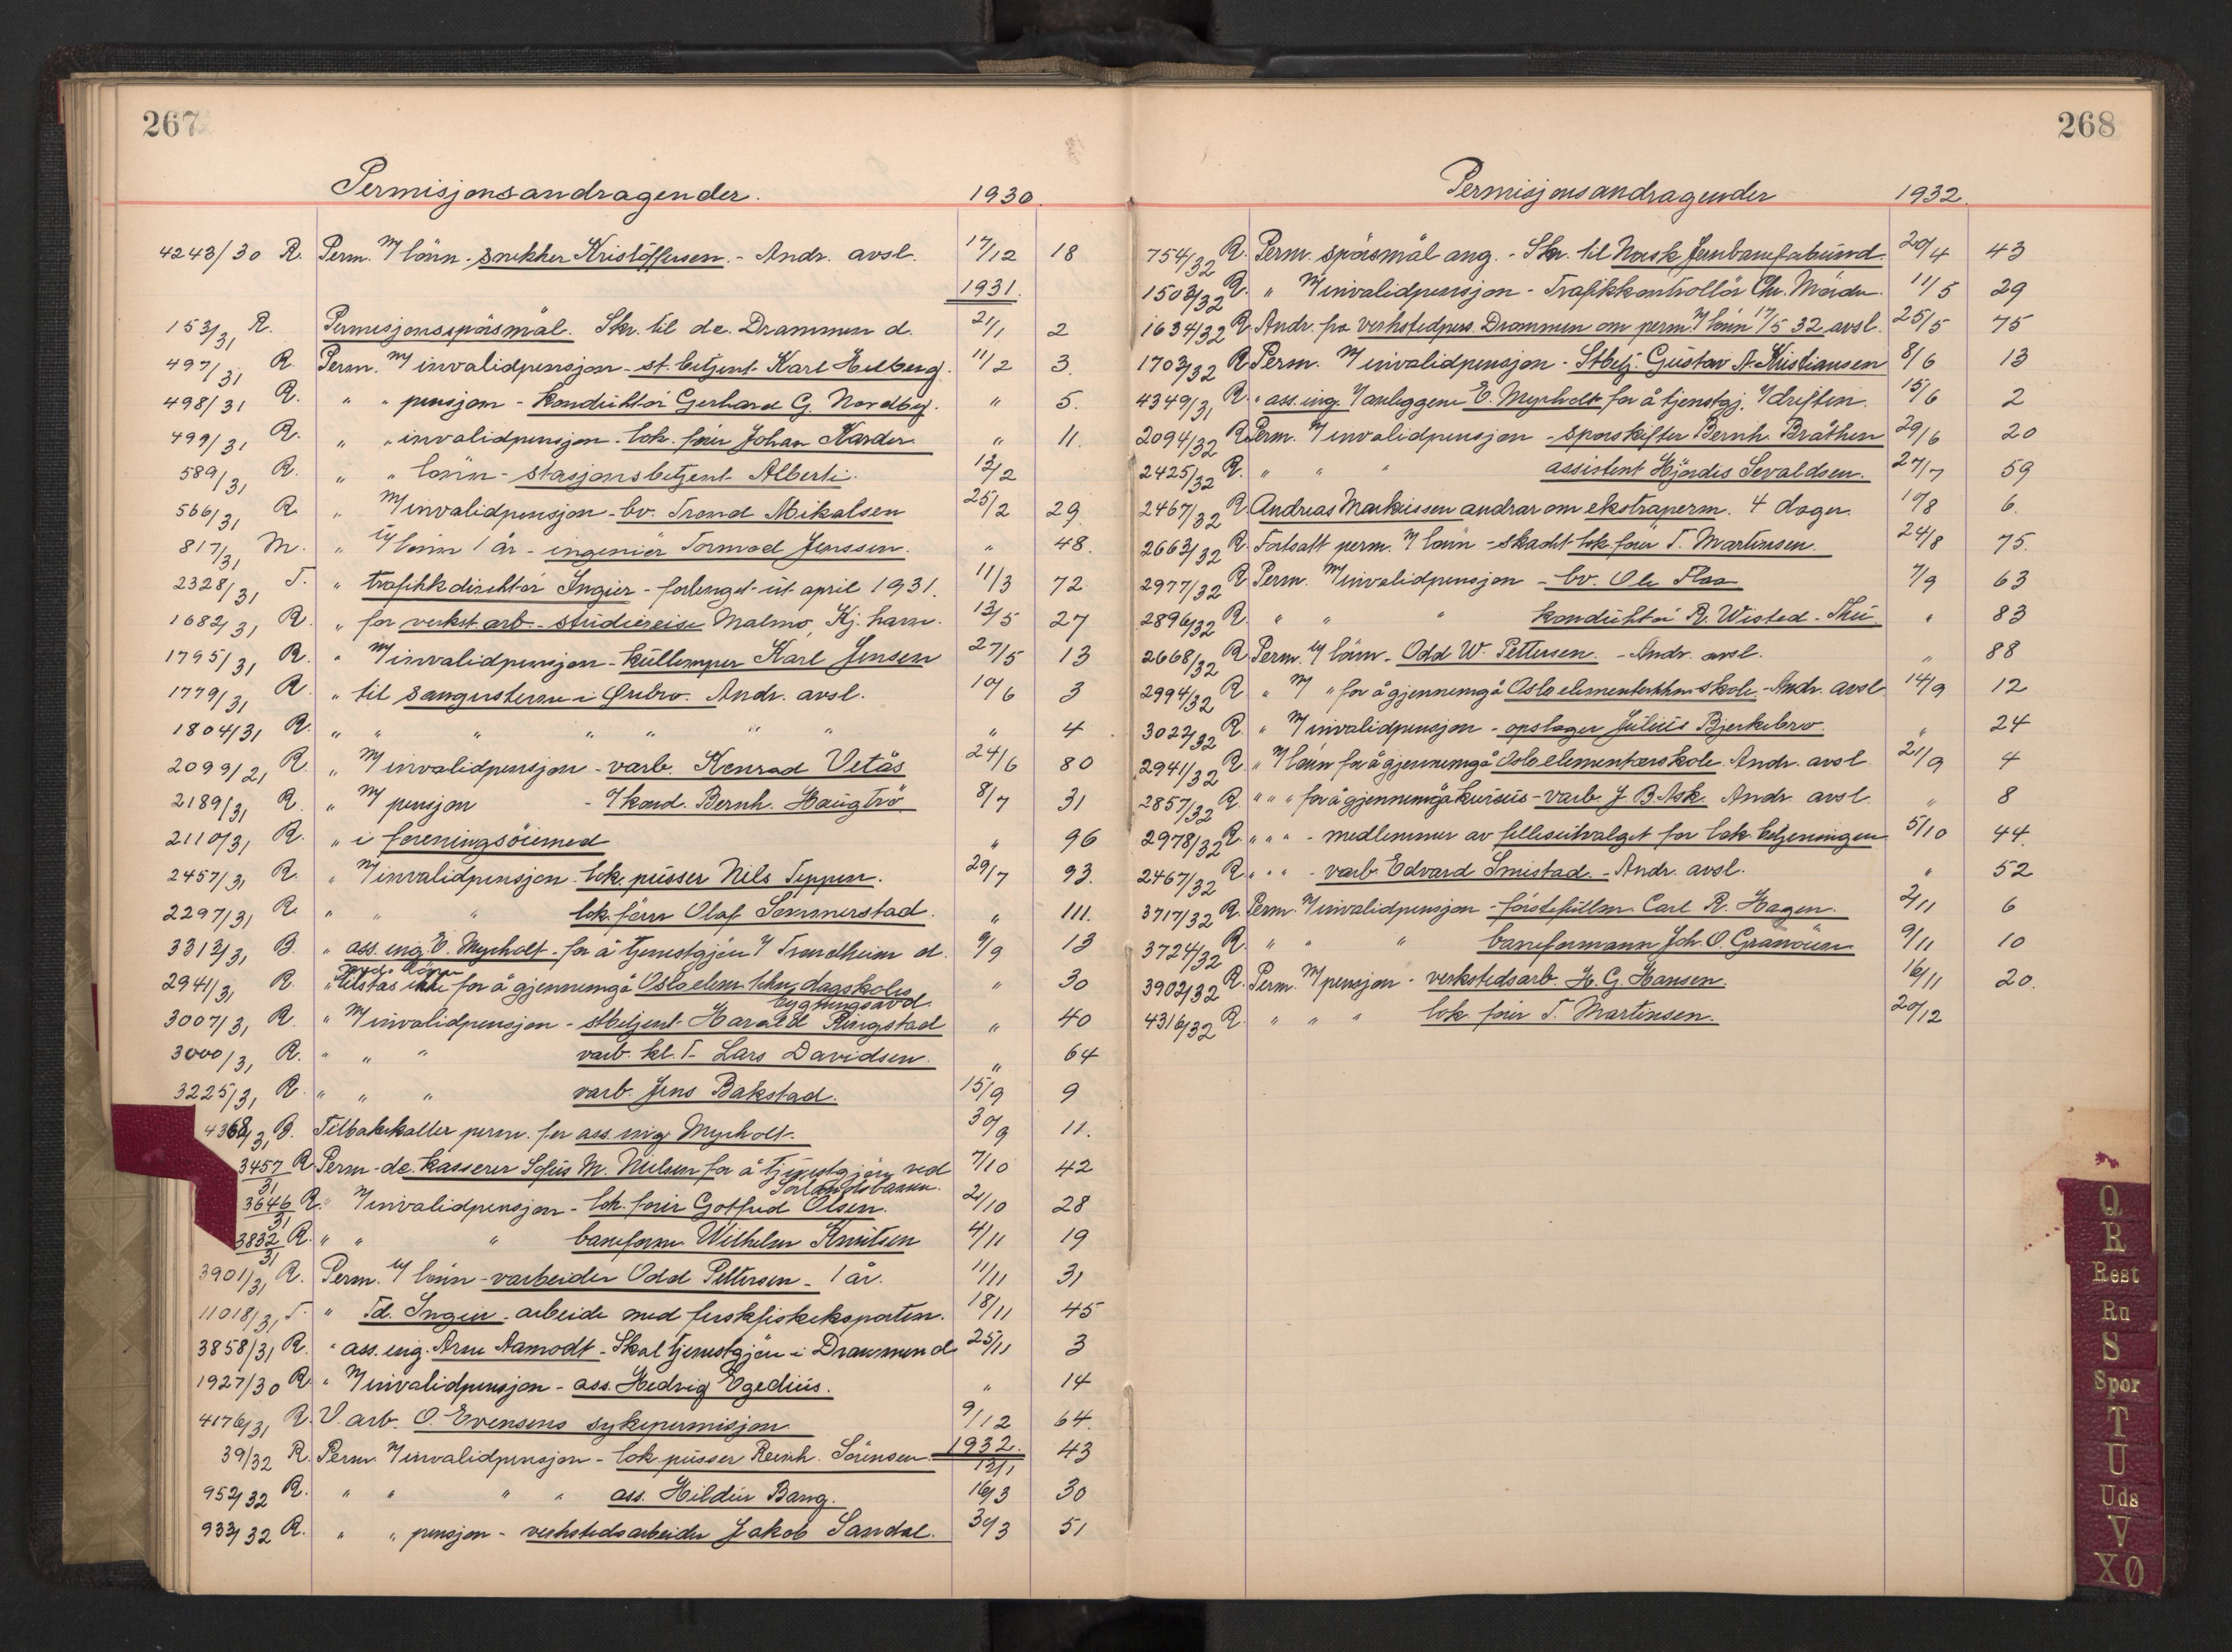 267
Permisjonsandragender. 1930.
4243/30 R. Perm. m/ lønn - snekker Kristoffersen. - Andr. avsl. 17/12 18
1931.
153/31 R. Permisjonsspörsmål. Skr. til dc. Drammen d. 21/1 2
497/31 R. Perm. m/ invalidpensjon - st. betjent Karl Helberg. 11/2 3.
498/31 R. " " pensjon - konduktör Gerhard G. Nordby. " 5.
499/31 R. " " invalidpensjon - lok. förer Johan Karder " 11.
589/31 R. " " lönn - stasjonsbetjent Alberti. 12/2
566/31 R. " m/ invalidpensjon - bv. Trond Mikalsen 25/2 29
817/31 M. " u/ lönn 1 år - ingeniör Tormod Jenssen. " 48.
2328/31 T. " trafikkdirektör Ingier - forlenget ut april 1931. 11/3 72
1682/31 R. " for verkst. arb. - studiereise Malmö, Kj. havn. 13/5 27
1795/31 R. " m/ invalidpensjon - kullemper Karl Jensen 27/5 13
1779/31 R. " til sangerstevne i Örebro. Andr. avsl. 10/6 3
1804/31 R. " " " " " " " " 4
2099/31 R. " m/ invalidpensjon - varb. Konrad Vetås 24/6 80
2189/31 R. " m/ pensjon - o/kond. Bernh. Haugtrö 8/7 31
2110/31 R. " i foreningsöiemed " 96
2457/31 R. " m/ invalidpensjon - lok. pusser Nils Teppen. 29/7 93.
2297/31 R. " " " lok. förer Olaf Sommerstad. " 111.
3313/31 B. " ass. ing. E. Myrholt - for å tjenestgjöre v/ Trondheim d. 9/9 13
2941/31 R. " tilstås ikke for å gjennemgå Oslo elem. tekn. dagskoles " 30
bygningsavd.
3007/31 R. " m/ invalidpensjon - stbetjent Harald Ringstad " 40
3000/31 R. " " " varb. kl. I - Lars Davidsen. " 64
3225/31 R. " " " varb. Jens Bakstad. 15/9 9
4368/31 B. Tilbakekaller perm. for ass. ing. Myrholt. 30/9 11.
3457/31 R. Perm - dc. kasserer Sofus M. Nielsen for å tjenestgjöre ved 7/10 42
Sørlandsbanen.
3646/31 R. " m/ invalidpensjon - lok. förer Gotfred Olsen. 21/10 28
3832/31 R. " " " baneform. Wilhelm Knutsen 4/11 19
3901/31 R. Perm. u/ lönn - varbeider Odd Pettersen - 1 år. 11/11 31
11018/31 T. " Td. Ingier - arbeide med ferskfiskeksporten. 18/11 45
3858/31 R. " ass. ing. Arne Aamodt - Skal tjenestgjöre i Drammen d. 25/11 3
1927/30 R. " m/ invalidpensjon - ass. Hedvig Egedius. " 14
4176/31 R. V. arb. O. Evensens sykepermisjon 9/12 64.
39/32 R. Perm. m/ invalidpensjon - lok. pusser Reinh. Sörensen. 1932. 13/1 43
952/32 R. " " " " ass. Hildur Bang. 16/3 30
933/32 R. " " pensjon - verkstedsarbeider Jakob Sandal. 30/3 51
268
Permisjonsandragender 1932.
754/32 R. Perm. spörsmål ang. - Skr. til Norsk Jernbaneforbund. 20/4 43
1503/32 R. " m/ invalidpensjon - Trafikkontrollör Chr. 11/5 29
1634/32 R. Andr. fra verkstedpers. Drammen om perm. m/ lönn 17/5 32 avsl. 25/5 75
1703/32 R. Perm. m/ invalidpensjon - Stbetj. Gustav A. Kristiansen 8/6 13
4349/31 R. " ass. ing. v/ anleggene E. Myrholt for å tjenestgj. v/ driften. 15/6 2
2094/32 R. Perm. m/ invalidpensjon - sporskifter Bernh. Bråthen 29/6 20
2425/32 R. " " " assistent Hjördis Sevaldsen. 27/7 59
2467/32 R. Andreas Markussen andrar om ekstraperm. 4 dager. 10/8 6.
2663/32 R. Fortsatt perm. m/ lönn - skadet lok. förer T. Martinsen. 24/8 75.
2977/32 R. Perm. m/ invalidpensjon - bv. Ole Flaa 7/9 63
2896/32 R. " " " konduktör R. Wisted - Thu. " 83
2668/32 R. Perm. u/ lönn - Odd W. Pettersen. - Andr. avsl. " 88
2994/32 R. " m/ " for å gjennemgå Oslo elementærtekn. skole. - Andr. avsl. 14/9 12
3022/32 R. " m/ invalidpensjon - opslager Julius Bjerkebro. " 24
2941/32 R. " m/ lönn for å gjennemgå Oslo elementærskole. Andr. avsl. 21/9 4
2857/32 R. " " " for å gjennemgå kursus - varb. J. B. Ask. Andr. avsl. " 8
2978/32 R. " " " - medlemmer av fellesutvalget for lok. betjeningen 5/10 44.
2467/32 R. " " " - varb. Edvard Smistad. - Andr. avsl. " 52
3717/32 R. Perm. m/ invalidpensjon - förstefullm. Carl R. Hagen. 2/11 6
3724/32 R. " " " baneformann Joh. O. 9/11 10
3902/32 R. Perm. m/ pensjon - verkstedsarb. H. G. Hansen. 16/11 20.
4316/32 R. " " " lok. förer T. Martinsen. 20/12
Q
R
Rest
Ru
S
Spor
T
U
Uds
V
XØ